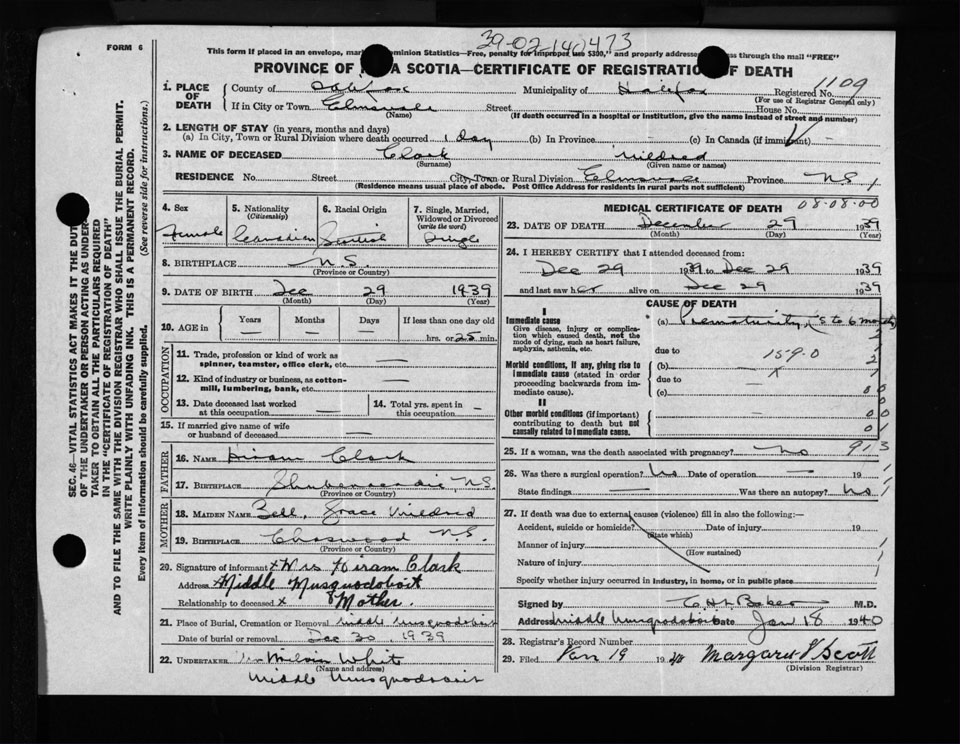 39-02 140473
FORM 6
This form if placed in an envelope, mar Dominion Statistics—Free, penalty for improper use $300," and properly addresse ss through the mail "FREE"
PROVINCE OF A SCOTIA—CERTIFICATE OF REGISTRATION OF DEATH
1109
1. PLACE OF DEATH
County of Halifax Municipality of Halifax Registered No.
(For use of Registrar General only)
If in City or Town Elmsvale Street House No.
(Name) (If death occurred in a hospital or institution, give the name instead of street and number)
2. LENGTH OF STAY (in years, months and days)
(a) In City, Town or Rural Division where death occurred 1 day (b) In Province (c) In Canada (if immigrant) —
3. NAME OF DECEASED Clark Mildred
(Surname) (Given name or names)
RESIDENCE No. Street City, Town or Rural Division Elmsvale Province N.S.
(Residence means usual place of abode. Post Office Address for residents in rural parts not sufficient)
4. Sex
Female
5. Nationality
(Citizenship)
Canadian
6. Racial Origin
7. Single, Married, Widowed or Divorced
(write the word)
Single
8. BIRTHPLACE N.S.
(Province or Country)
9. DATE OF BIRTH Dec 29 1939
(Month) (Day) (Year)
10. AGE in
Years Months Days If less than one day old
hrs. or 22 min.
OCCUPATION
11. Trade, profession or kind of work as spinner, teamster, office clerk, etc. —
12. Kind of industry or business, as cotton-mill, lumbering, bank, etc. —
13. Date deceased last worked at this occupation —
14. Total yrs. spent in this occupation —
15. If married give name of wife or husband of deceased —
FATHER
16. NAME Hiram Clark
17. BIRTHPLACE Shubenacadie, N.S.
(Province or Country)
MOTHER
18. MAIDEN NAME Bell, Grace Mildred
19. BIRTHPLACE Chaswood N.S.
(Province or Country)
20. Signature of informant x Mrs Hiram Clark
Address x Middle Musquodoboit
Relationship to deceased x Mother.
21. Place of Burial, Cremation or Removal Middle Musquodoboit
Date of burial or removal Dec 30, 1939
22. UNDERTAKER
(Name and address)
Middle Musquodoboit
MEDICAL CERTIFICATE OF DEATH
08-08-00
23. DATE OF DEATH December 29 1939
(Month) (Day) (Year)
24. I HEREBY CERTIFY that I attended deceased from:
Dec 29 1939 to Dec 29 1939
and last saw her alive on Dec 29 1939
CAUSE OF DEATH
I
Immediate cause
Give disease, injury or complication which caused death, not the mode of dying, such as heart failure, asphyxia, asthenia, etc.
(a) Prematurity, (5 to 6 months)
due to 159.0
Morbid conditions, if any, giving rise to immediate cause (stated in order proceeding backwards from immediate cause).
(b)
due to
(c)
II
Other morbid conditions (if important) contributing to death but not causally related to immediate cause.
25. If a woman, was the death associated with pregnancy? No
913
26. Was there a surgical operation? No Date of operation — 19
State findings — Was there an autopsy? No
27. If death was due to external causes (violence) fill in also the following:—
Accident, suicide or homicide? Date of injury 19
(State which)
Manner of injury
(How sustained)
Nature of injury
Specify whether injury occurred in industry, in home, or in public place
Signed by M.D.
Address Middle Musquodoboit Date Jan 18 1940
28. Registrar's Record Number
29. Filed Jan 19 1940 Margaret Scott
(Division Registrar)
SEC. 46—VITAL STATISTICS ACT MAKES IT THE DUTY
OF THE UNDERTAKER OR PERSON ACTING AS UNDER-
TAKER TO OBTAIN ALL THE PARTICULARS REQUIRED
IN THE "CERTIFICATE OF REGISTRATION OF DEATH"
AND TO FILE THE SAME WITH THE DIVISION REGISTRAR WHO SHALL ISSUE THE BURIAL PERMIT.
WRITE PLAINLY WITH UNFADING INK. THIS IS A PERMANENT RECORD.
Every item of information should be carefully supplied. (See reverse side for instructions.)